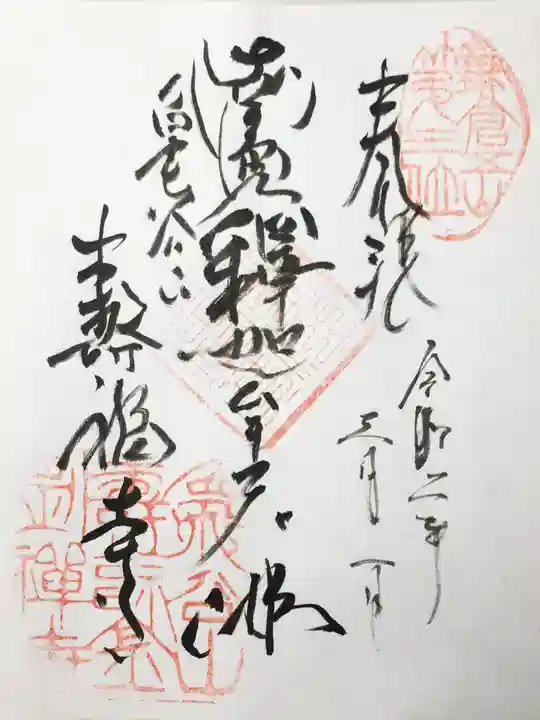 鎌倉五山
第三位
奉拝
令和二年
三月一日
寳冠釋迦牟尼佛
亀谷山
壽福寺
亀谷山
壽福金
剛禅寺